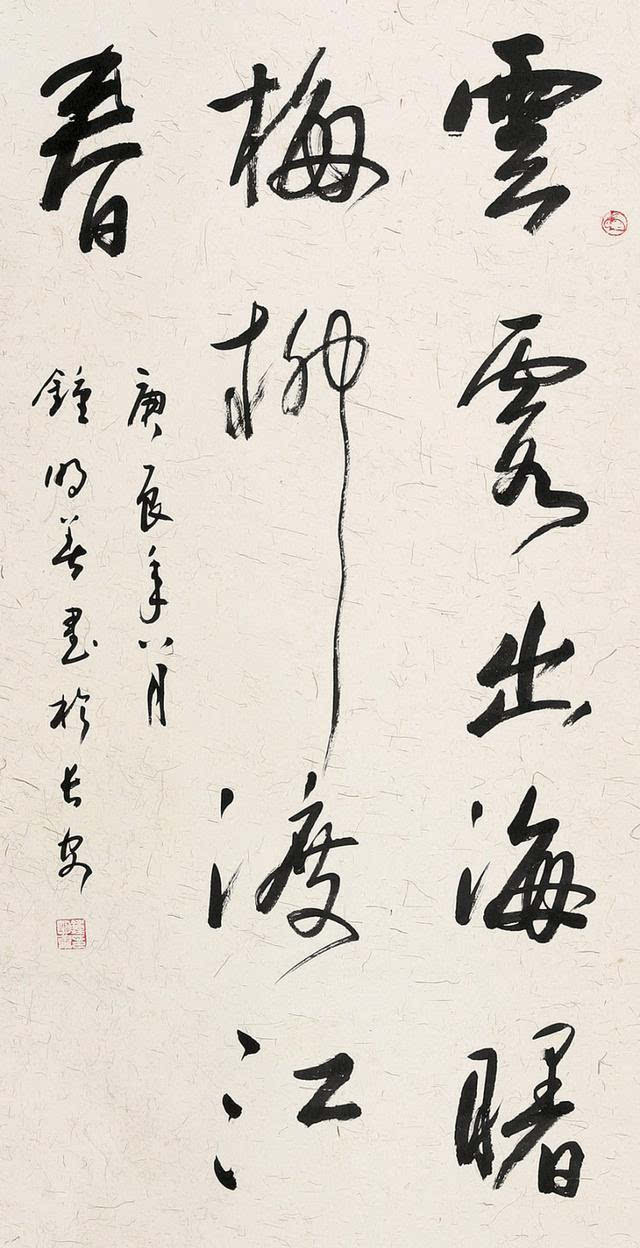 雲霞出海曙
梅柳渡江
春
庚辰年八月
鍾明善書於長安